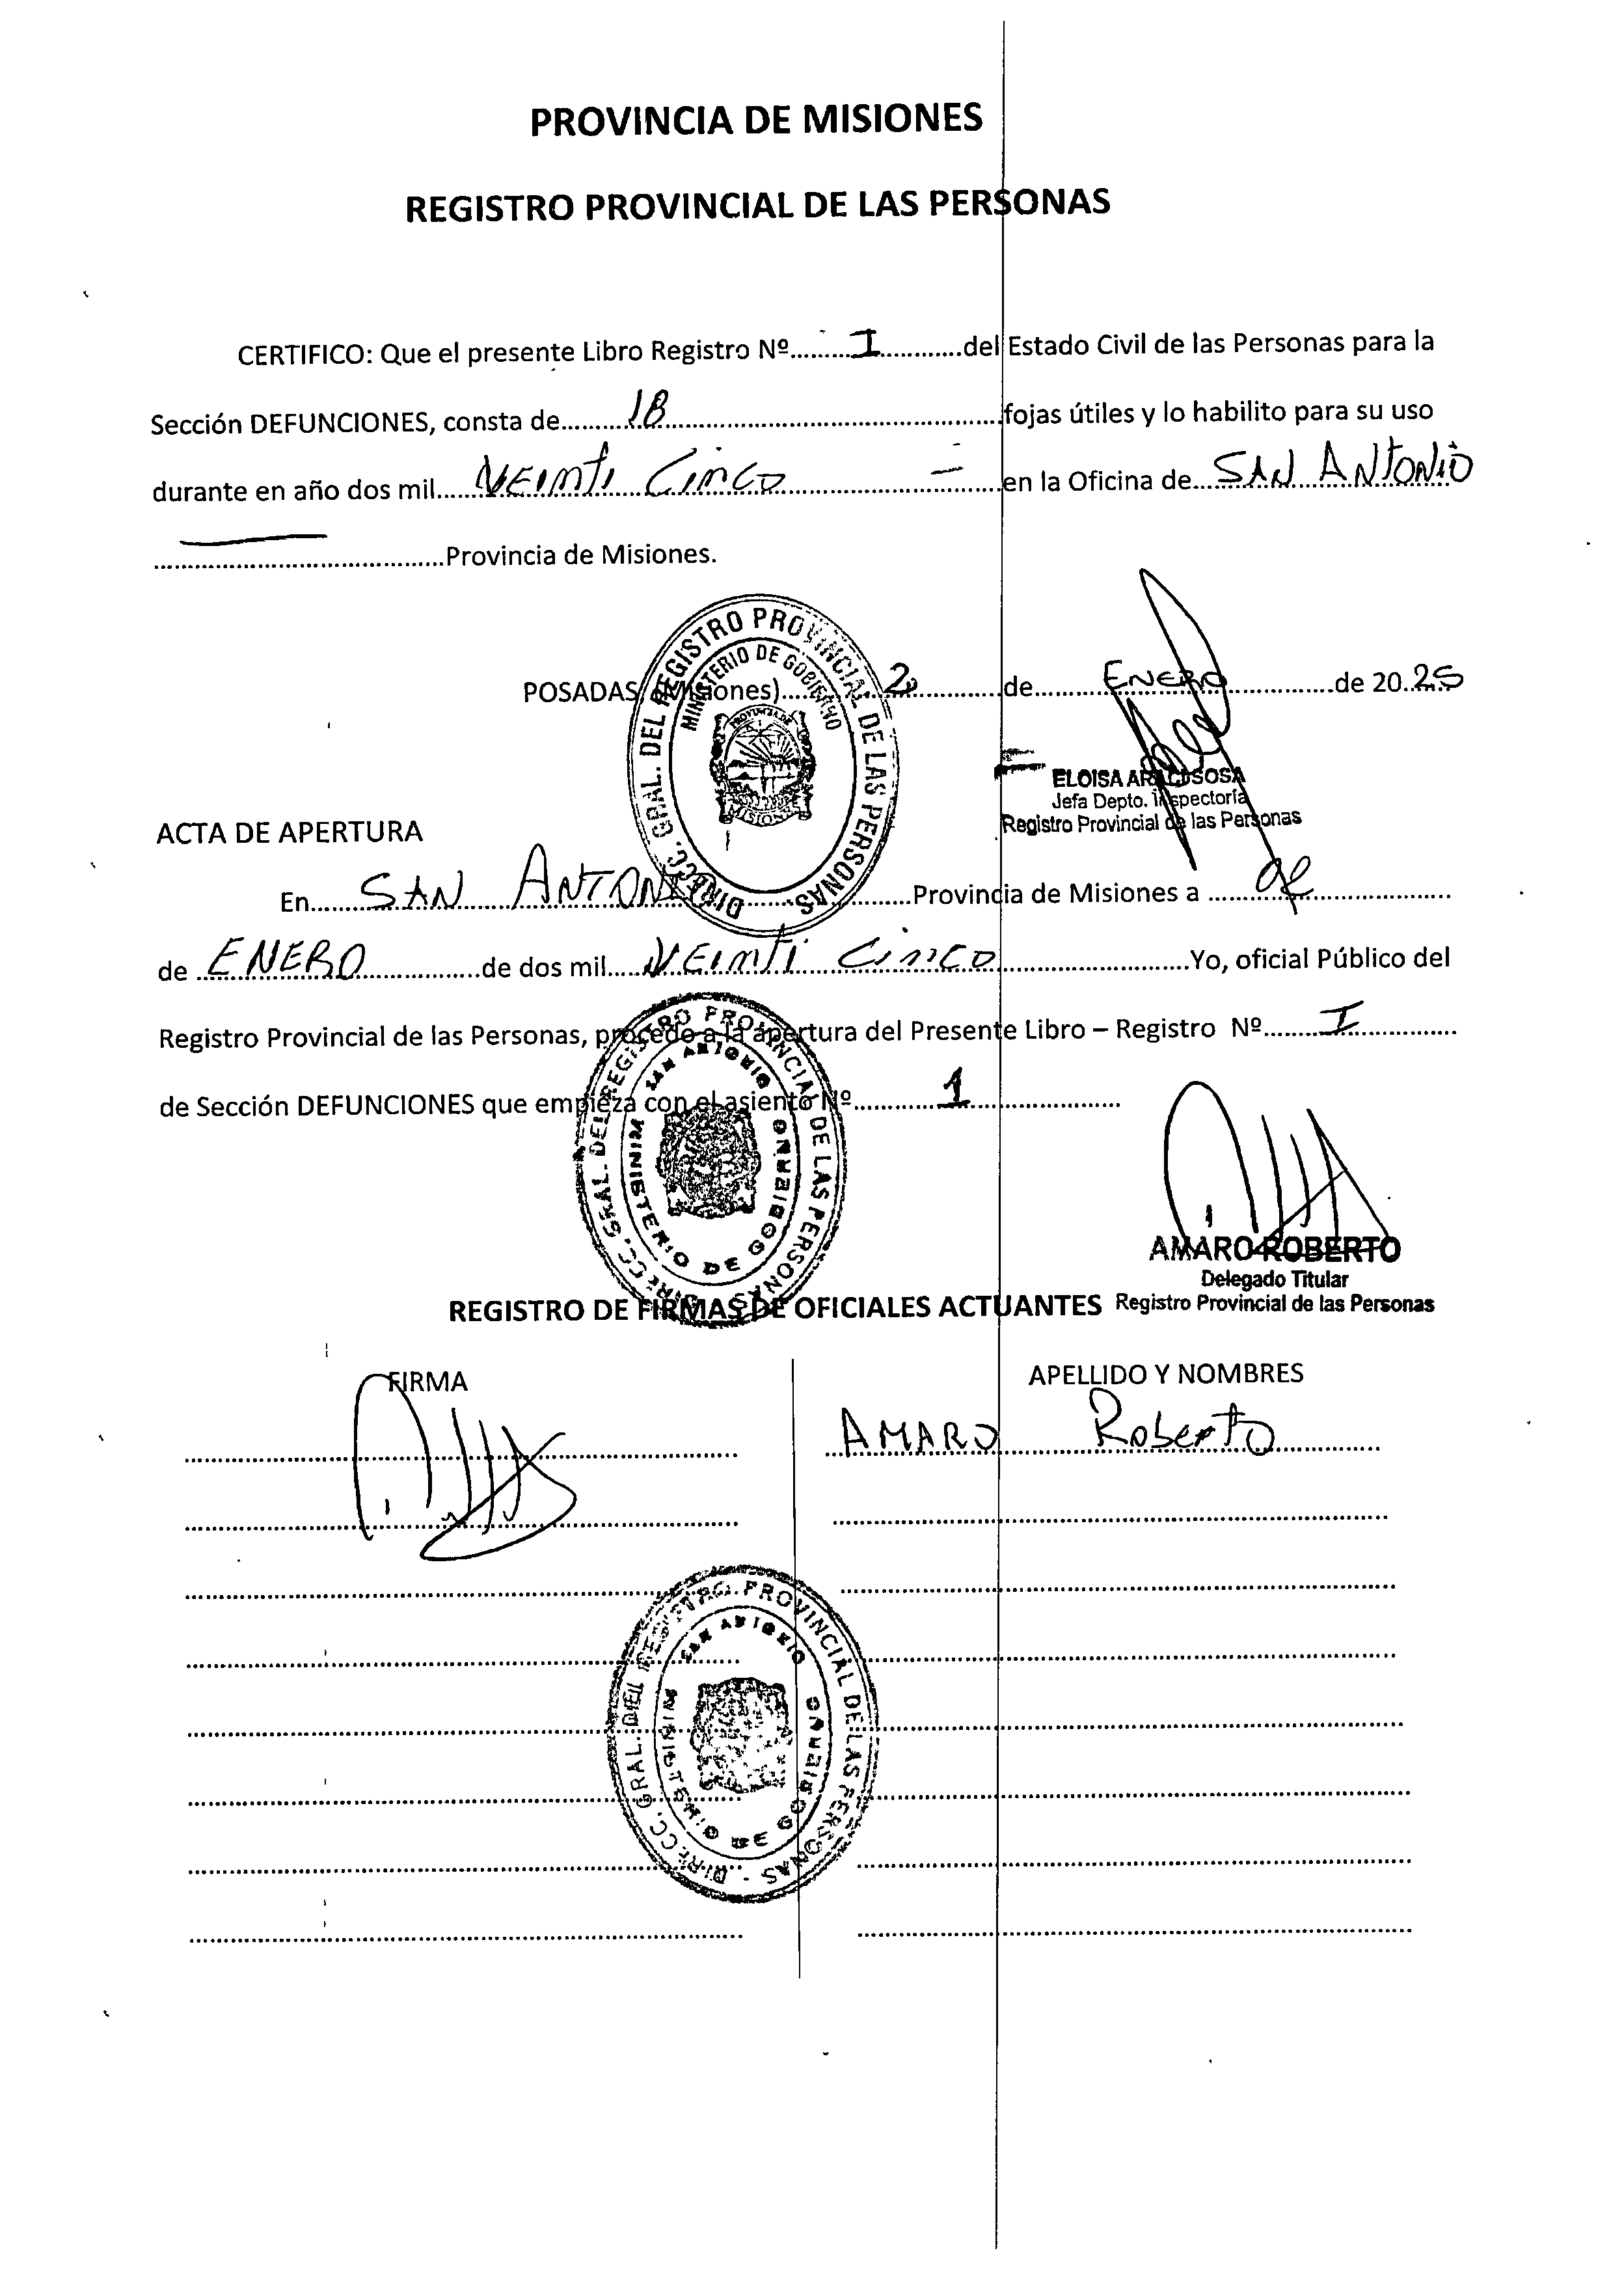 PROVINCIA DE MISIONES
REGISTRO PROVINCIAL DE LAS PERSONAS
CERTIFICO: Que el presente Libro Registro Nº......I......del Estado Civil de las Personas para la
Sección DEFUNCIONES, consta de......18......fojas útiles y lo habilito para su uso
durante en año dos mil....VEINTI CINCO —......en la Oficina de...SAN ANTONIO
......Provincia de Misiones.
POSADAS (Misiones)......2......de......ENERO......de 20.25
ELOISA ARACI SOSA
Jefa Depto. Inspectoría
Registro Provincial de las Personas
DIRECC. GRAL. DEL REGISTRO PROVINCIAL DE LAS PERSONAS.
MINISTERIO DE GOBIERNO
PROVINCIA DE
MISIONES
ACTA DE APERTURA
En......SAN ANTONIO......Provincia de Misiones a ......02......
de ..ENERO......de dos mil....VEINTI CINCO......Yo, oficial Público del
Registro Provincial de las Personas, procedo a la apertura del Presente Libro – Registro Nº......I......
de Sección DEFUNCIONES que empieza con el asiento Nº......1......
DIRECC. GRAL. DEL REGISTRO PROVINCIAL DE LAS PERSONAS
SAN ANTONIO
MINISTERIO DE GOBIERNO
AMARO ROBERTO
Delegado Titular
Registro Provincial de las Personas
REGISTRO DE FIRMAS DE OFICIALES ACTUANTES
FIRMA APELLIDO Y NOMBRES
AMARO Roberto
DIRECC. GRAL. DEL REGISTRO PROVINCIAL DE LAS PERSONAS -
SAN ANTONIO
MINISTERIO DE GOBIERNO